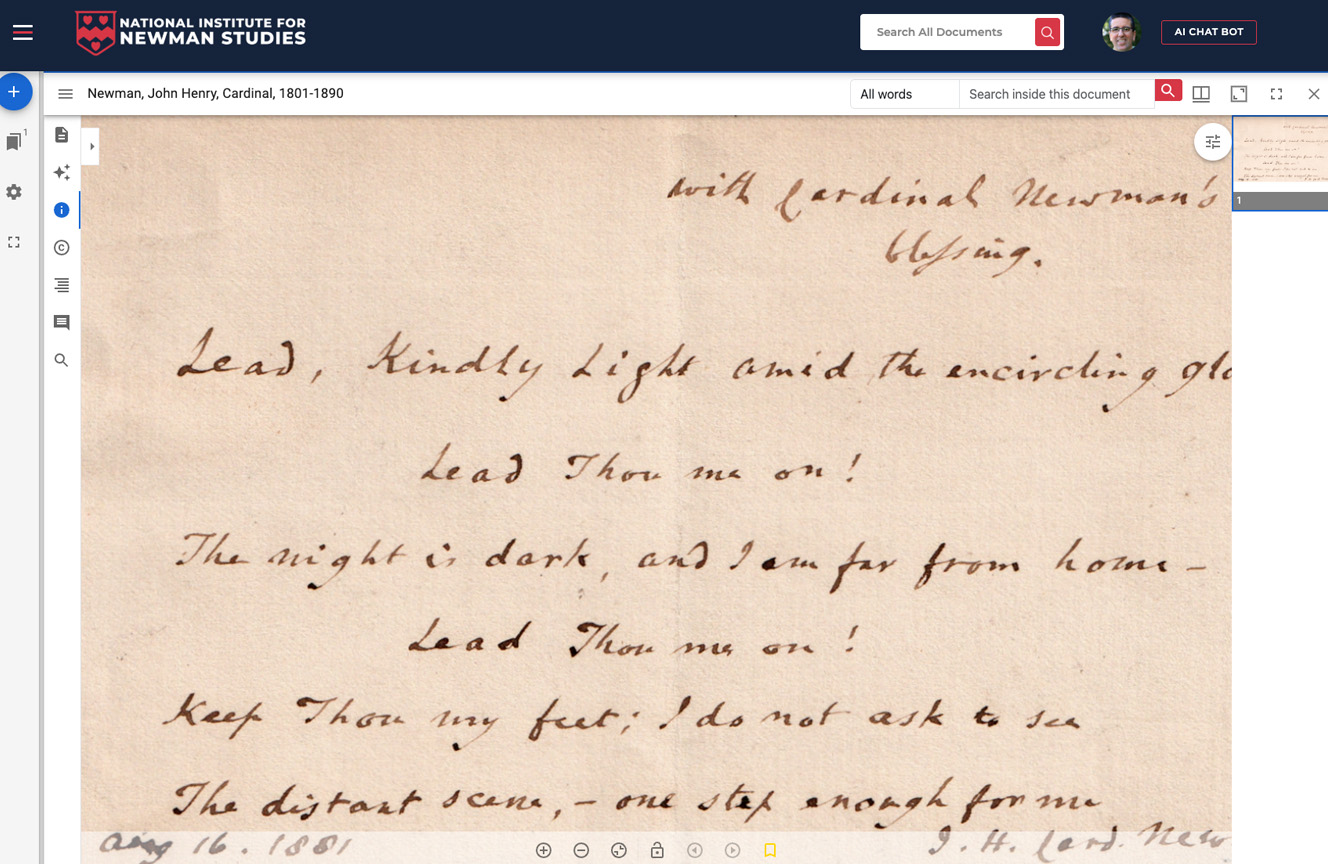 NATIONAL INSTITUTE FOR
NEWMAN STUDIES
Search All Documents
AI CHAT BOT
Newman, John Henry, Cardinal, 1801-1890
All words
Search inside this document
1
with Cardinal Newman's
blessing.
Lead, Kindly Light amid the encircling glo
Lead Thou me on!
The night is dark, and I am far from home –
Lead Thou me on!
Keep Thou my feet; I do not ask to see
The distant scene, – one step enough for me
Aug 16. 1881
J. H. Card. New
1